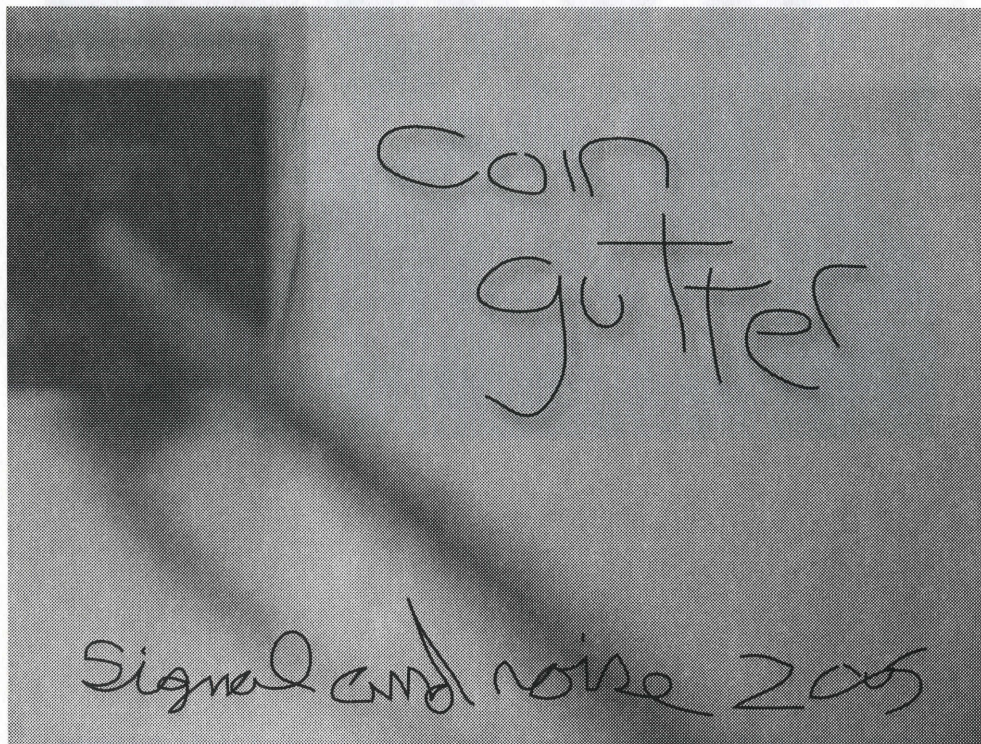 Coin
gutter
Signal and noise 2005